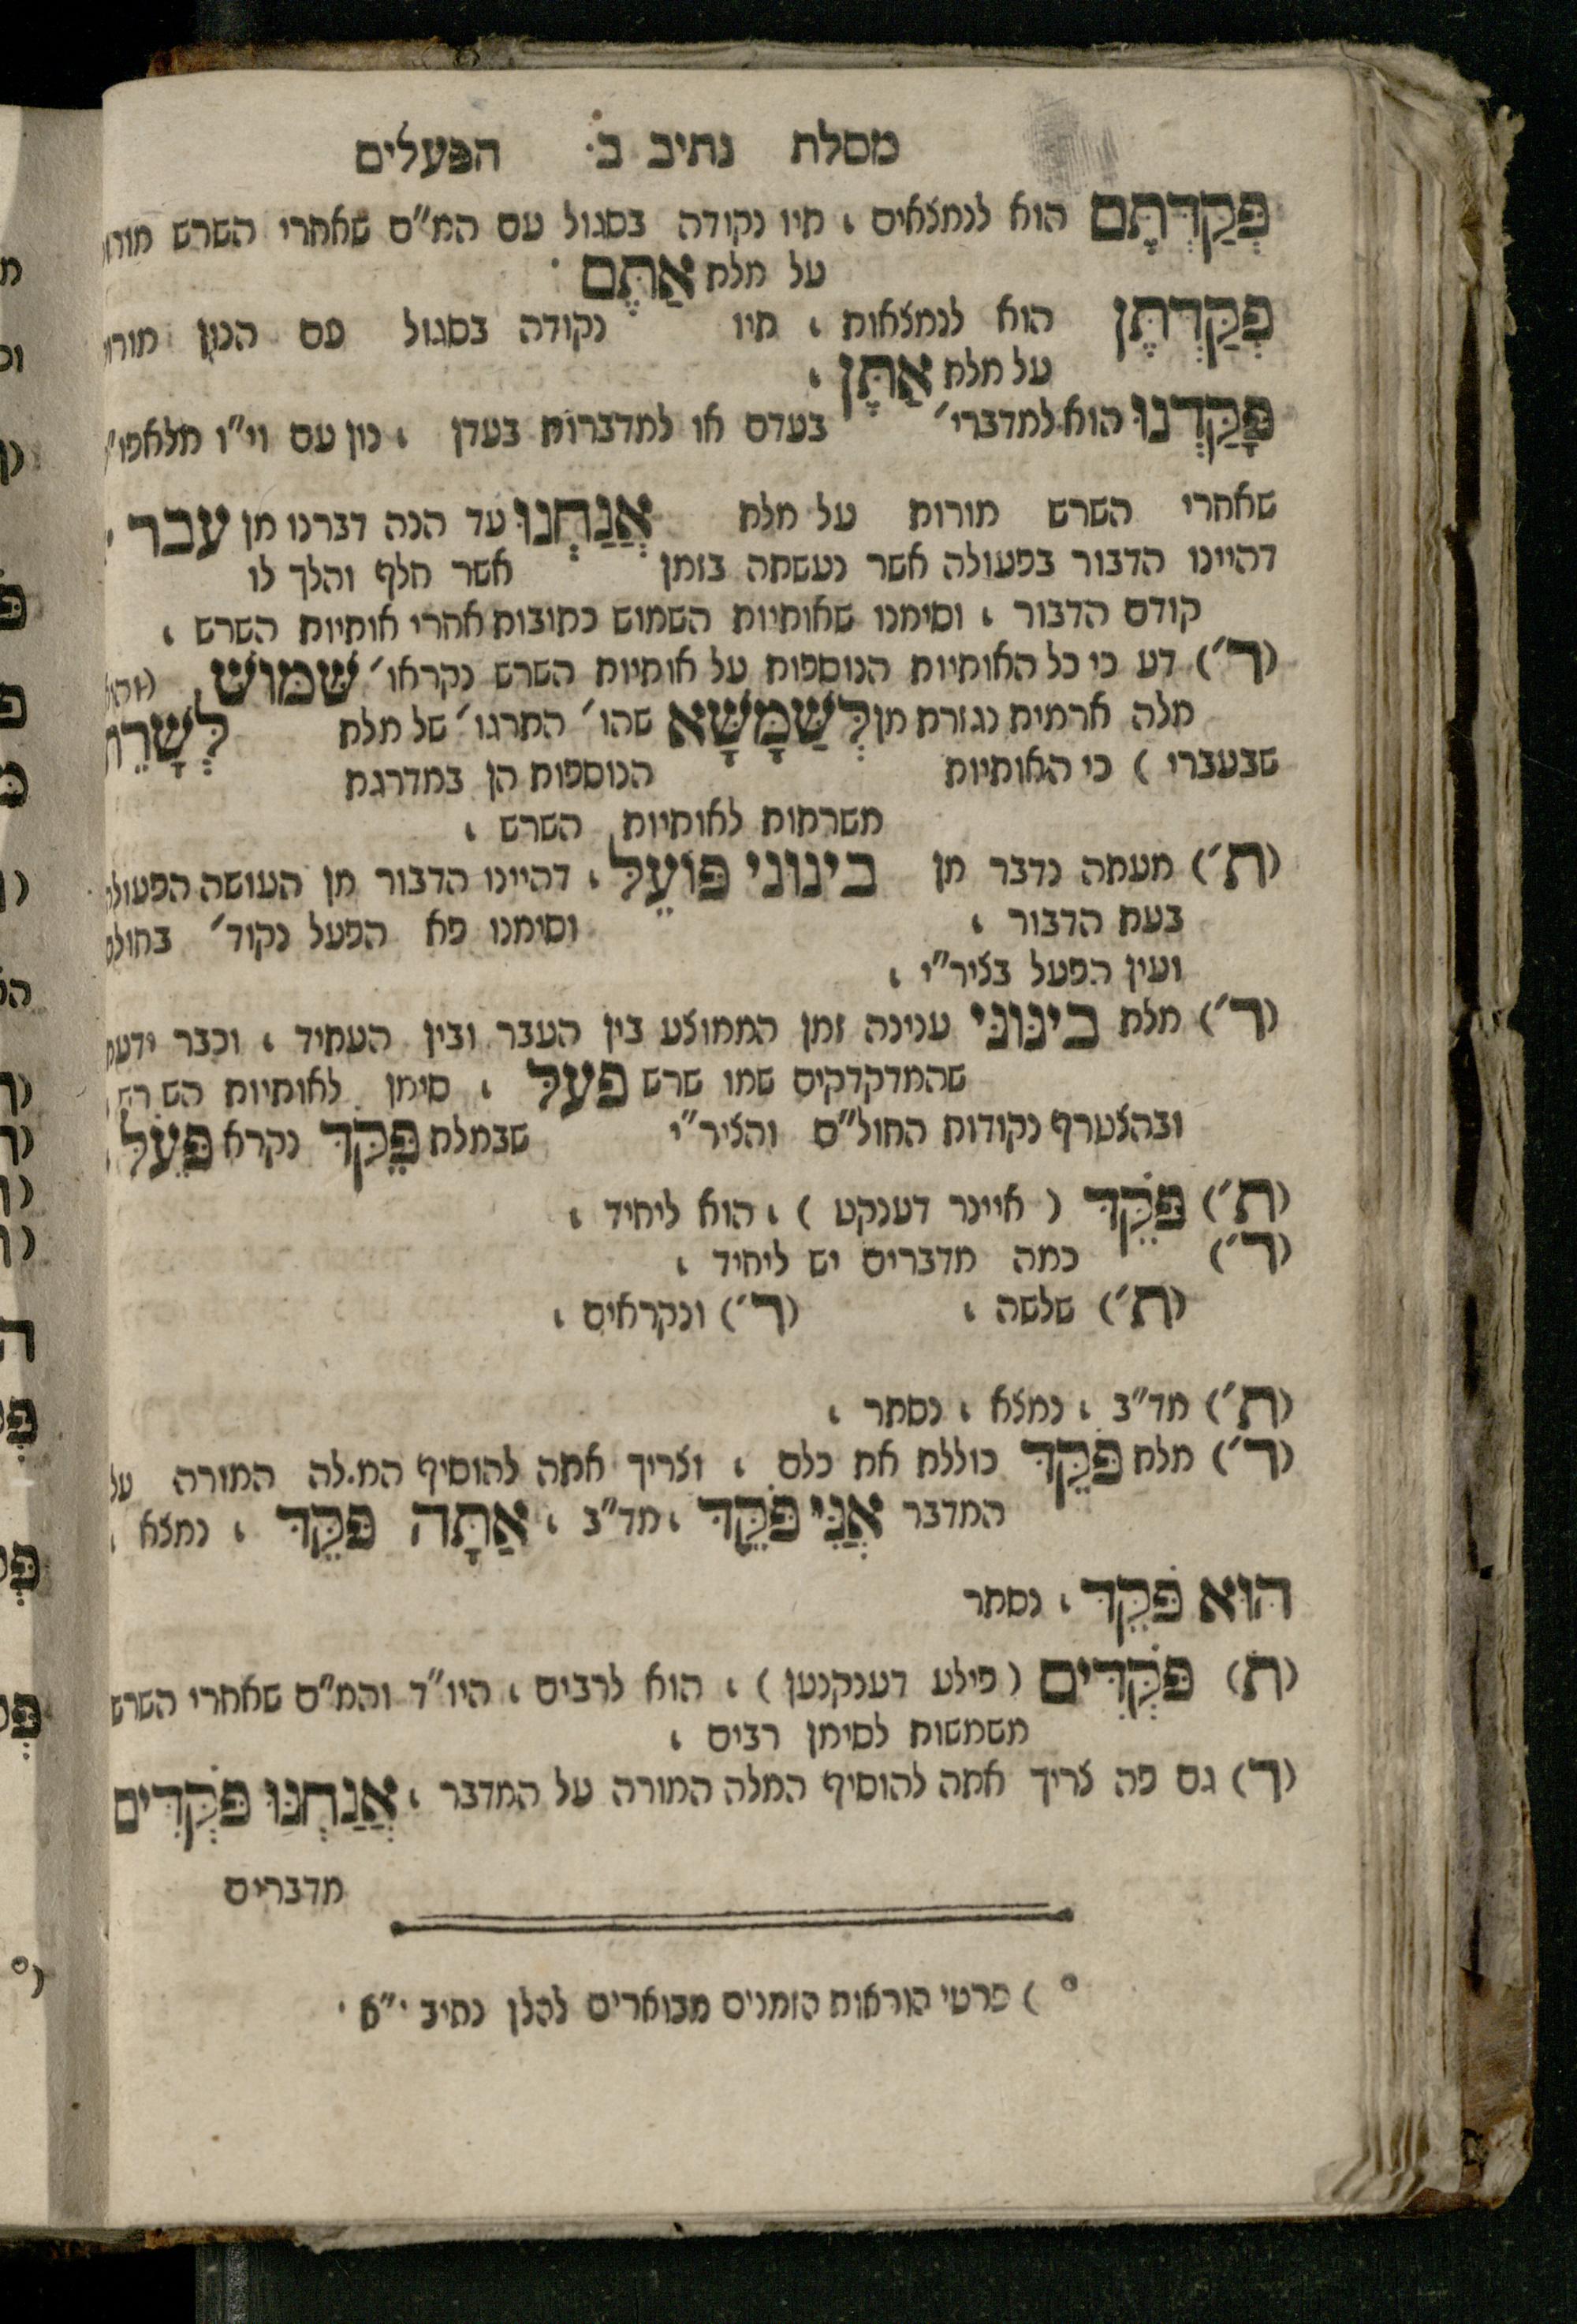 מסלת נתיב ב׳ הפעלים
פְּקַדְתֶּם הוא לנמצאים , תיו נקודה בסגול עם המ״ם שאחרי השרש
על מלת אַתֶּם ·
פְּקַדְתֶּן הוא לנמצאות , תיו נקודה בסגול עם הנון
על מלת אַתֶּן ,
פָּקַדְנוּ הוא למדברי׳ בעדם או למדברות בעדן , נון עם וי״ו
שאחרי השרש מורות על מלת אֲנַחְנוּ עד הנה דברנו מן עבר ,
דהיינו הדבור בפעולה אשר נעשתה בזמן אשר חלף והלך לו
קודם הדבור , וסימנו שאותיות השמוש כתובות אחרי אותיות השרש ,
(ר׳) דע כי כל האותיות הנוספות על אותיות השרש נקראו׳ שִׁמּוּשׁ
מלה ארמית נגזרת מן לְשַׁמָּשָׁא שהו׳ התרגו׳ של מלת
שבעברי ) כי האותיות הנוספות הן במדרגת
משרתות לאותיות השרש ,
(ת׳) מעתה נדבר מן בינוני פּוֹעֵל , דהיינו הדבור מן העושה
בעת הדבור , וסימנו פא הפעל נקוד׳
ועין הפעל בציר״י ,
(ר׳) מלת בינוני ענינה זמן הממוצע בין העבר ובין העתיד , וכבר
שהמדקדקים שמו שרש פעל , סימן לאותיות השרש
ובהצטרף נקודות החול״ם והציר״י שבמלת פֹּקֵד נקרא פֹּעֵל
(ת׳) פֹּקֵד ( איינר דענקט ) , הוא ליחיד ,
(ר׳) כמה מדברים יש ליחיד ,
(ת׳) שלשה , (ר׳) ונקראים ,
(ת׳) מד״ב , נמצא , נסתר ,
(ר׳) מלת פֹּקֵד כוללת את כלם , וצריך אתה להוסיף המלה המורה על
המדבר אֲנִי פֹּקֵד , מד״ב , אַתָּה פֹּקֵד , נמצא ,
הוּא פֹּקֵד , נסתר
(ת) פֹּקְדִים ( פילע דענקנען ) , הוא לרבים , היו״ד והמ״ם שאחרי השרש
משמשות לסימן רבים ,
(ר) גם פה צריך אתה להוסיף המלה המורה על המדבר , אֲנַחְנוּ פֹּקְדִים
מדברים
° ) פרטי הוראות הזמנים מבוארים להלן נתיב י״א ·